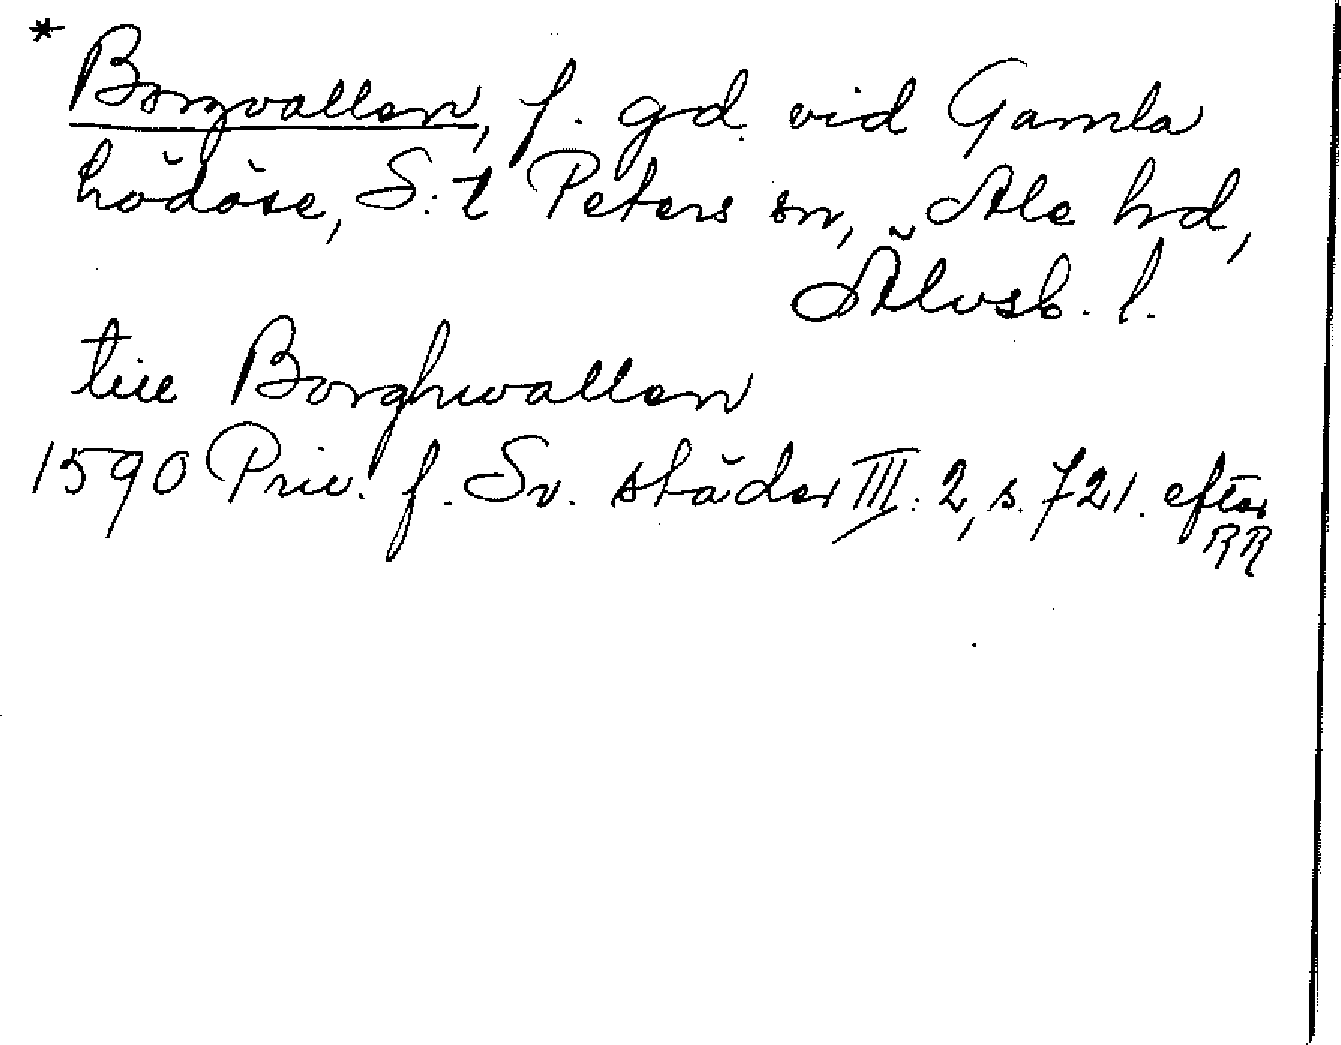 * Borgvallen, f. gd. vid Gamla
Lödöse, S:t Peters sn, Ale hd,
Älvsb. l.
till Borghwallen
1590 Priv. f. Sv. städer III: 2, s. 721. efter
RR